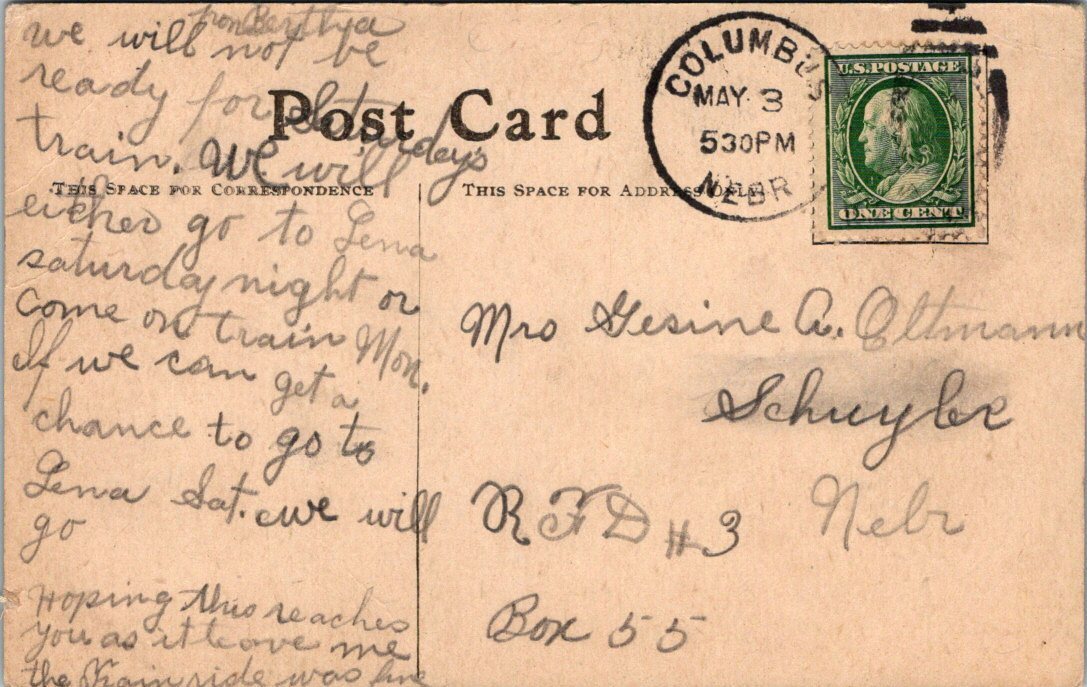 from Berthya
we will not be
ready for Saturdays
train. We will
either go to Lena
saturday night or
come on train Mon.
If we can get a
chance to go to
Lena Sat. we will
go
Hoping this reaches
you as it leave me
the train ride was fine
Post Card
THIS SPACE FOR CORRESPONDENCE
THIS SPACE FOR ADDRESS ONLY
COLUMBUS
MAY 3
530PM
NEBR
U.S. POSTAGE
ONE CENT
Mrs Gesine A. Oltmann
Schuyler
RFD #3 Nebr
Box 55